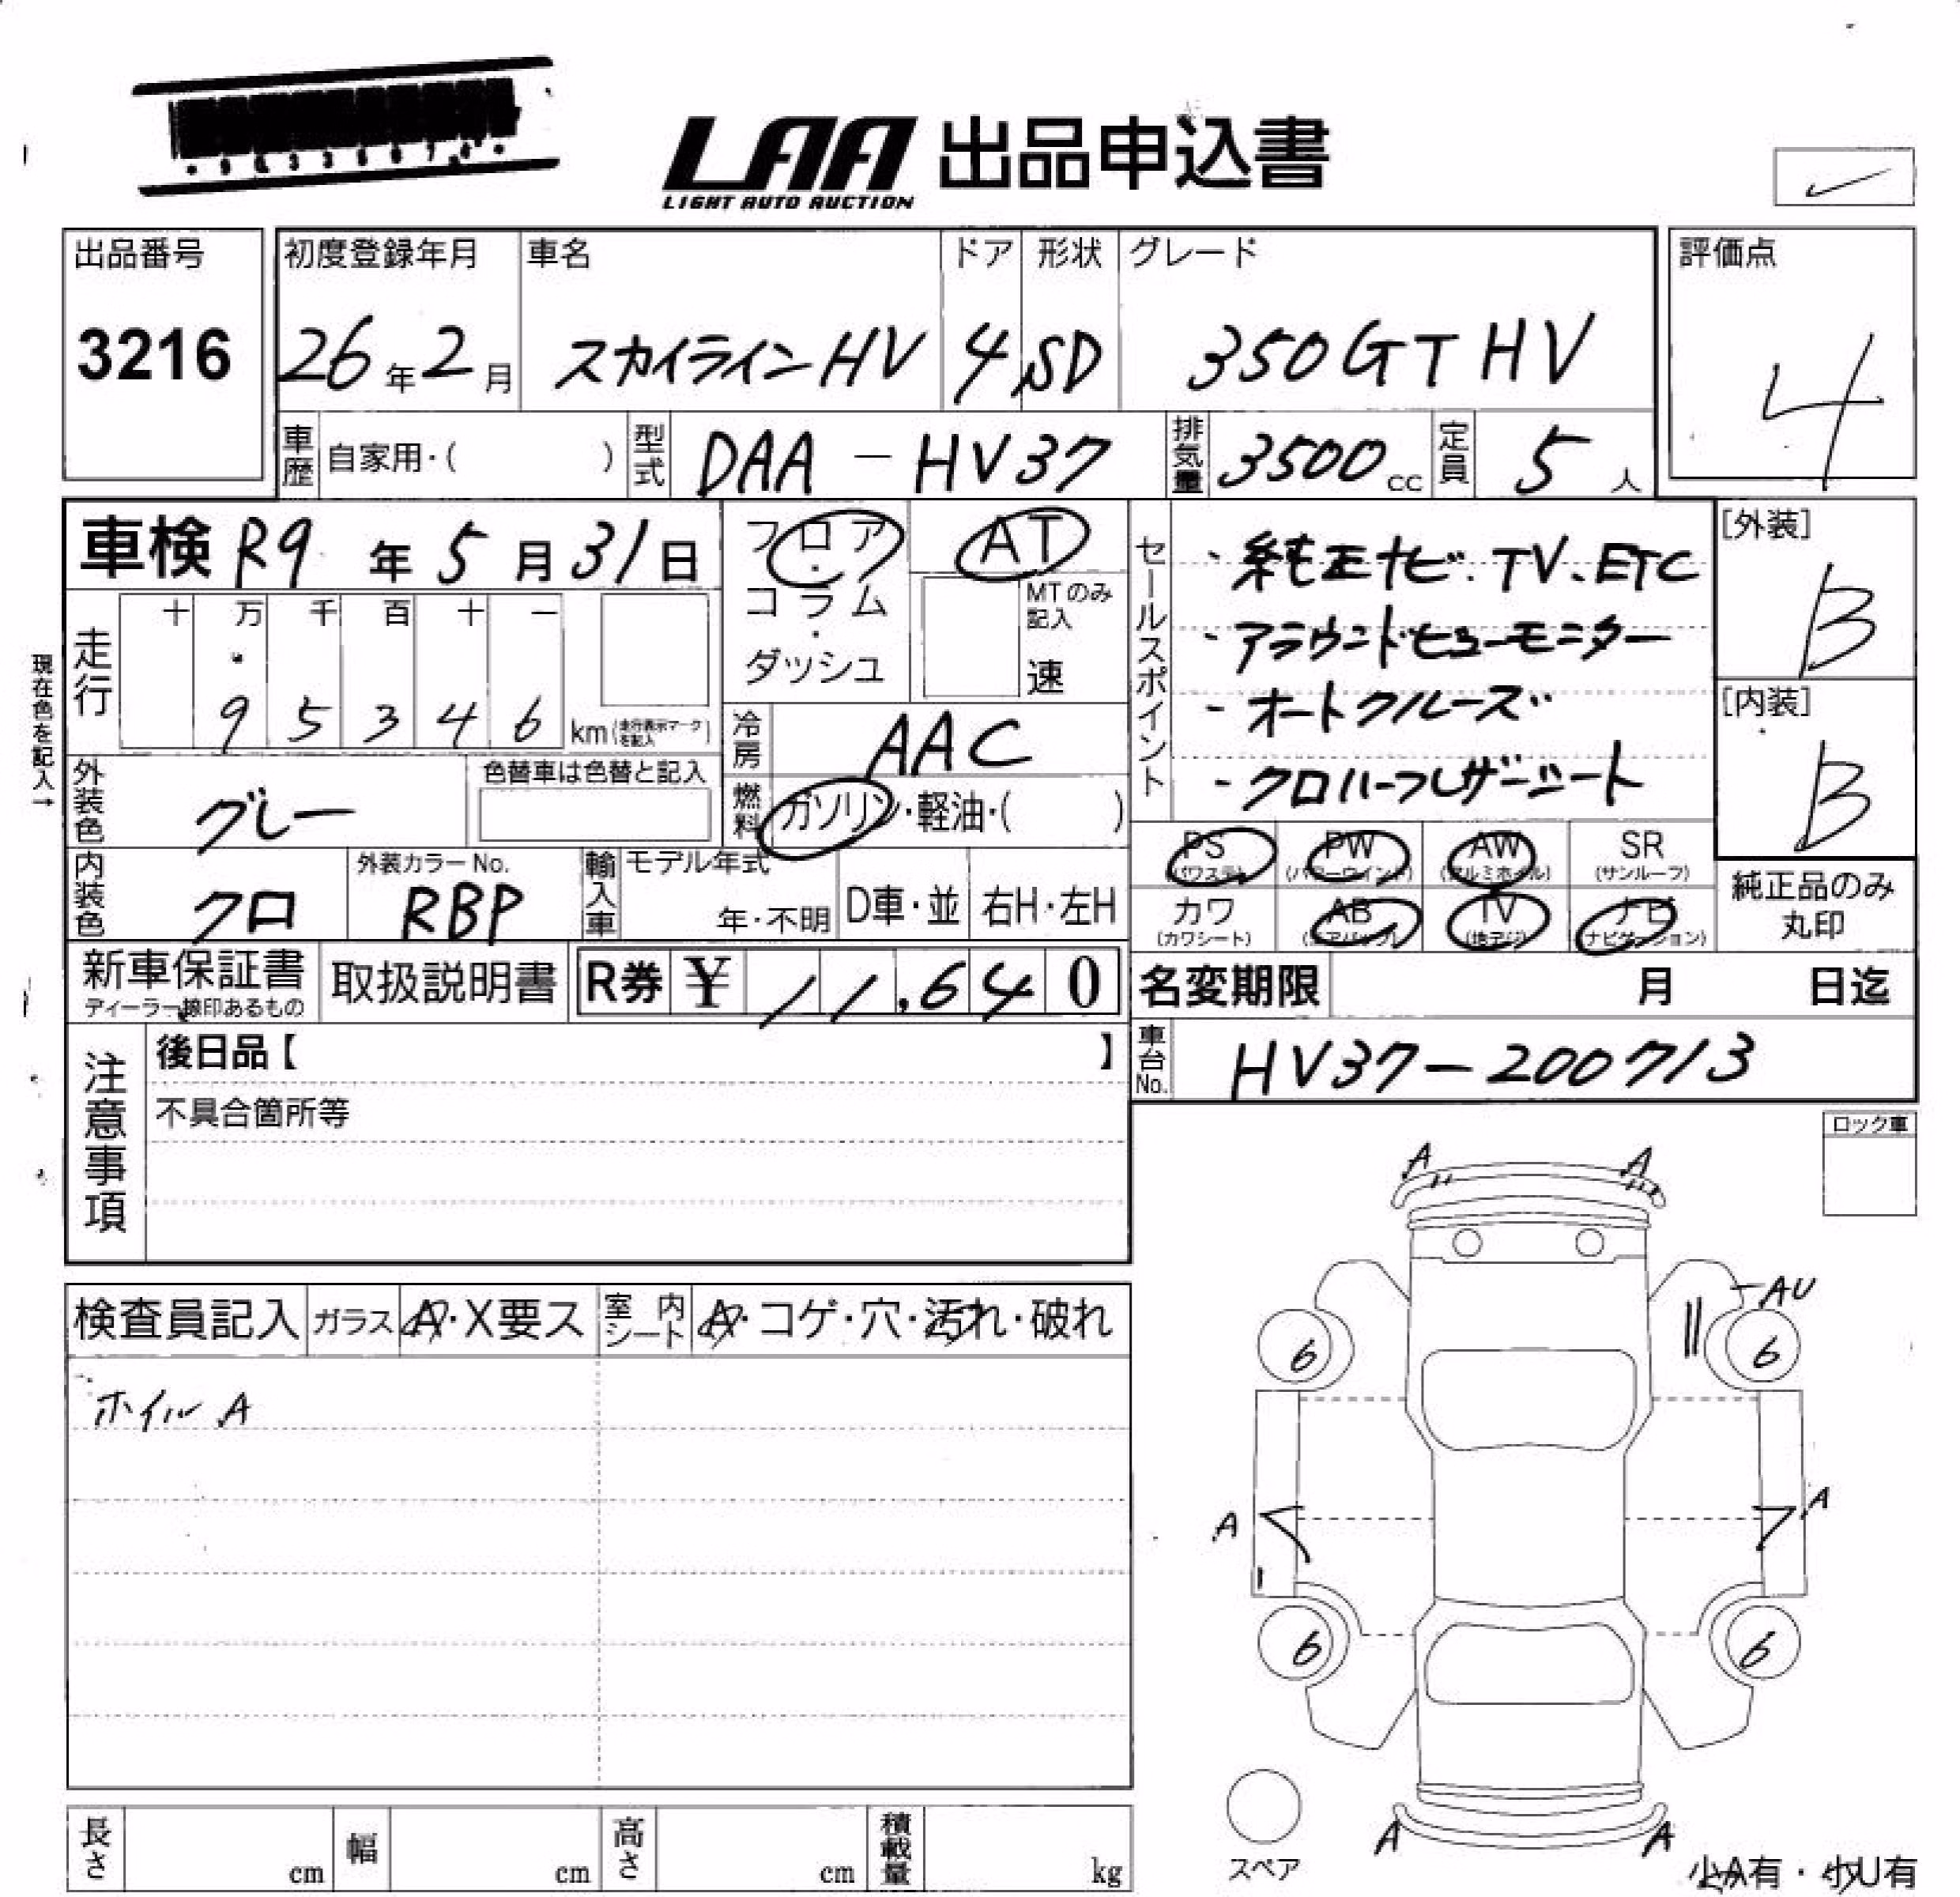 LAA 出品申込書
LIGHT AUTO AUCTION
出品番号
3216
初度登録年月
26年2月
車名
スカイラインHV
ドア
4
形状
SD
グレード
350GT HV
評価点
4
車歴
自家用・( )
型式
DAA-HV37
排気量
3500cc
定員
5人
車検 R9年5月31日
フロア・コラム・ダッシュ
AT
MTのみ記入
速
セールスポイント
・純正ナビ.TV、ETC
・アラウンドビューモニター
・オートクルーズ
・クロハーフレザーシート
[外装]
B
[内装]
B
現在色を記入→
走行
十 万 千 百 十 一
9 5 3 4 6
km(走行表示マークを記入)
冷房
AAC
燃料
ガソリン・軽油・( )
外装色
グレー
色替車は色替と記入
内装色
クロ
外装カラーNo.
RBP
輸入車
モデル年式
年・不明
D車・並
右H・左H
PS
(パワステ)
PW
(パワーウインド)
AW
(アルミホイル)
SR
(サンルーフ)
カワ
(カワシート)
AB
(エアバッグ)
TV
(地デジ)
ナビ
(ナビゲーション)
純正品のみ
丸印
新車保証書
ディーラー捺印あるもの
取扱説明書
R券 ¥ 11,640
名変期限 月 日迄
車台No.
HV37-200713
注意事項
後日品【 】
不具合箇所等
ロック車
検査員記入
ガラス
A・X要ス
室内シート
A・コゲ・穴・汚れ・破れ
ホイル A
A A
AU
6 6
A A
6 6
A A
スペア
少A有・少U有
長さ cm
幅 cm
高さ cm
積載量 kg